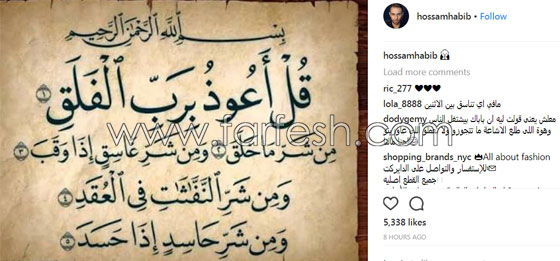 بِسْمِ اللَّهِ الرَّحْمَٰنِ الرَّحِيمِ
قُلْ أَعُوذُ بِرَبِّ الْفَلَقِ ١
مِن شَرِّ مَا خَلَقَ ٢ وَمِن شَرِّ غَاسِقٍ إِذَا وَقَبَ ٣
وَمِن شَرِّ النَّفَّاثَاتِ فِي الْعُقَدِ ٤
وَمِن شَرِّ حَاسِدٍ إِذَا حَسَدَ ٥
www.farfesh.com
hossamhabib • Follow
hossamhabib
Load more comments
ric_277 ♥♥♥
lola_8888 مافي اي تناسق بين الاثنين
dodygemy معلش يعني قولت ليه ان باباك بيشتغل الناس
وهوة اللي طلع الاشاعة ما تتجوزو
shopping_brands_nyc All about fashion
للإستفسار والتواصل على الدايركت
جميع القطع اصلية
5,338 likes
8 HOURS AGO